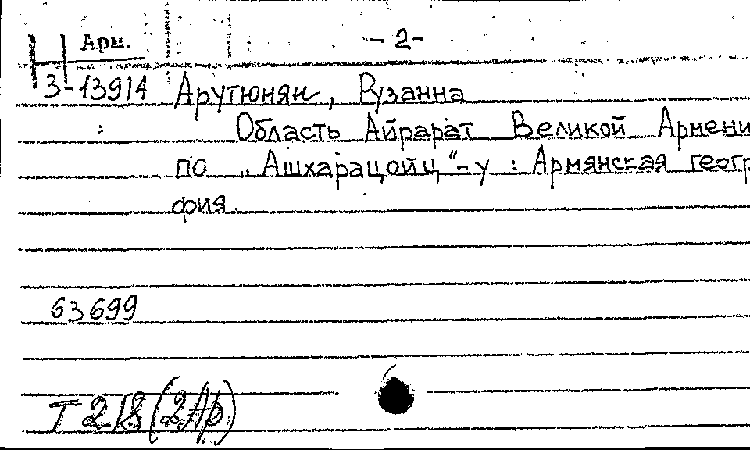 Арм.
- 2 -
3-13914 Арутюнян, Рузанна
Область Айрарат Великой Армени
по „Ашхарацойц“-у : Армянская геогр
фия.
63699